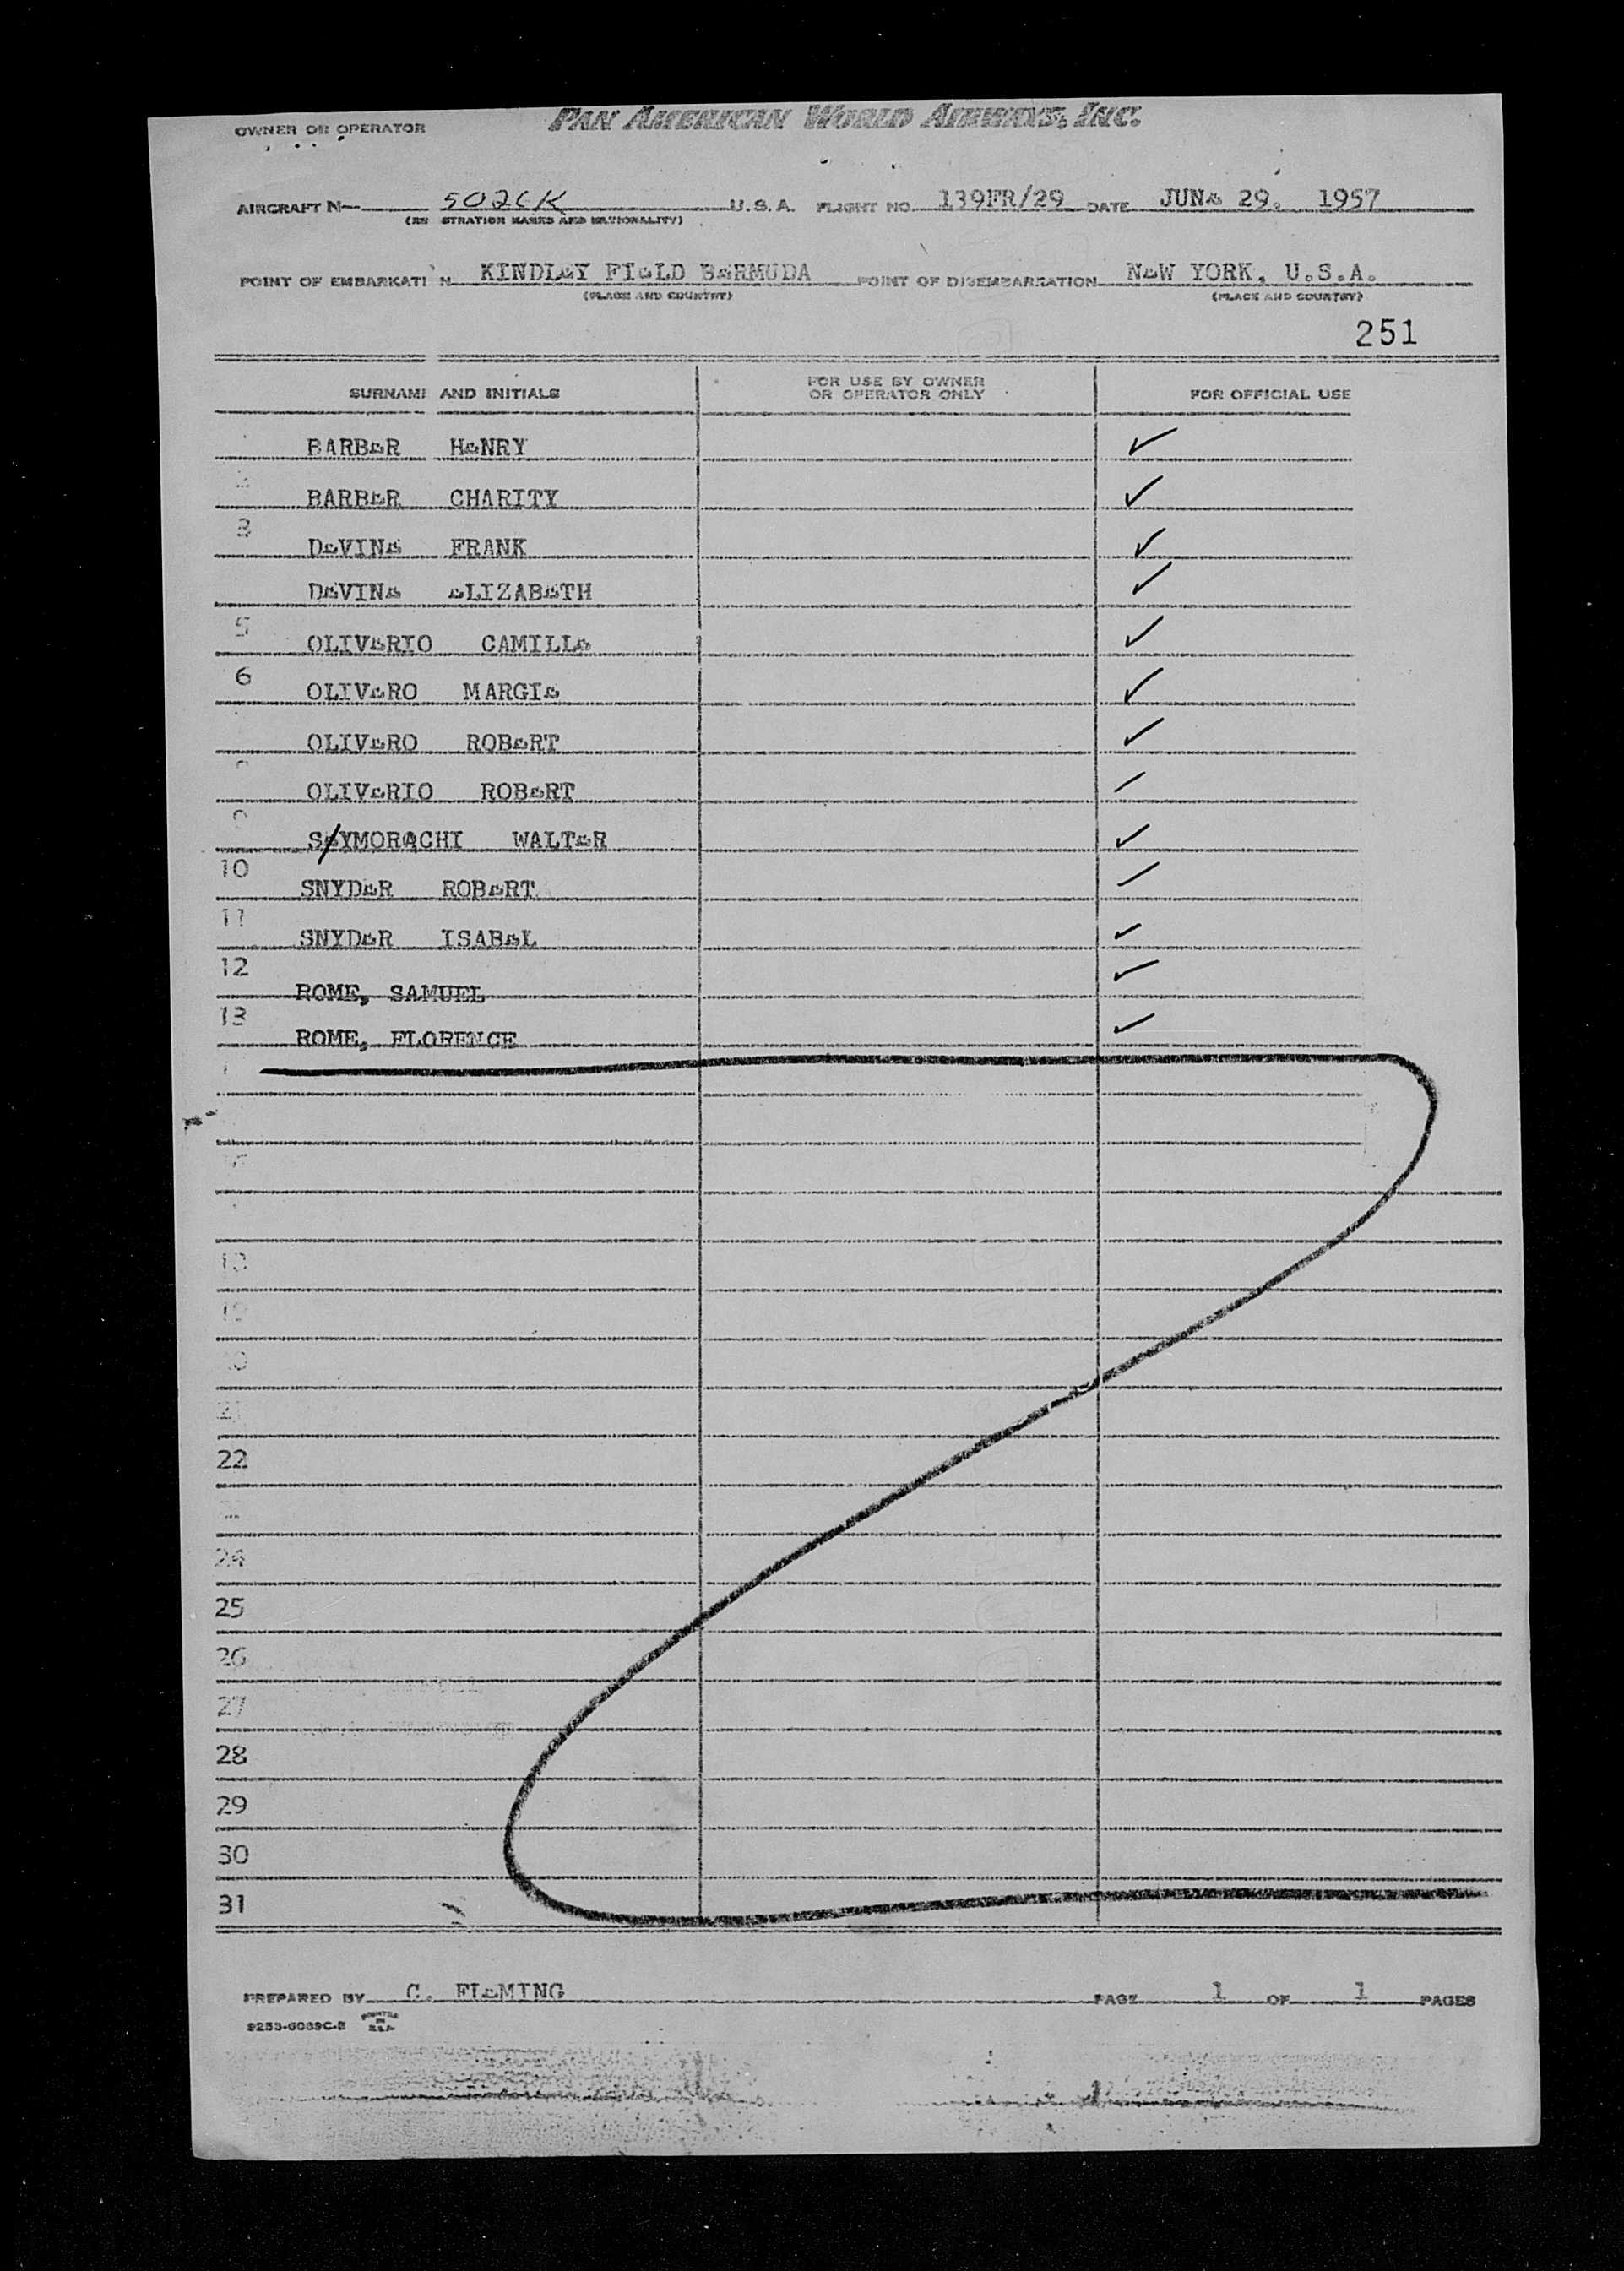 PAN AMERICAN WORLD AIRWAYS, INC.
OWNER OR OPERATOR
AIRCRAFT N— 5026K U.S.A. FLIGHT NO. 139FR/29 DATE JUNe 29. 1957
(RE STRATION MARKS AND NATIONALITY)
POINT OF EMBARKATI N KINDLeY FIeLD BeRMUDA POINT OF DISEMBARKATION NeW YORK, U.S.A.
(PLACE AND COUNTRY) (PLACE AND COUNTRY)
251
SURNAME AND INITIALS FOR USE BY OWNER OR OPERATOR ONLY FOR OFFICIAL USE
BARBeR HeNRY ✓
BARBeR CHARITY ✓
3 DeVINe FRANK ✓
DeVINe eLIZABeTH ✓
5 OLIVeRIO CAMILLe ✓
6 OLIVeRO MARGIe ✓
OLIVeRO ROBeRT ✓
OLIVeRIO ROBeRT ✓
9 SeYMORACHI WALTeR ✓
10 SNYDeR ROBeRT ✓
11 SNYDeR ISABeL ✓
12 ROME, SAMUEL ✓
13 ROME, FLORENCE ✓
18
19
20
21
22
24
25
26
27
28
29
30
31
PREPARED BY C. FLeMING PAGE 1 OF 1 PAGES
PRINTED IN U.S.A.